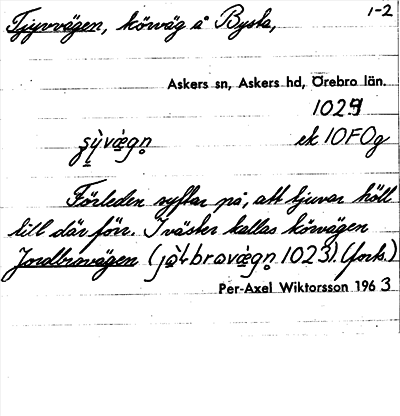 Tjyvvägen, körväg å Bysta, 1-2
Askers sn, Askers hd, Örebro län.
1029
ek 10F0g
Förleden syftar på, att tjuvar höll
till där förr. I väster kallas körvägen
Jordbrovägen (jo̱ɫbravæ̱gn̥ 1023). (forts.)
Per-Axel Wiktorsson 1963